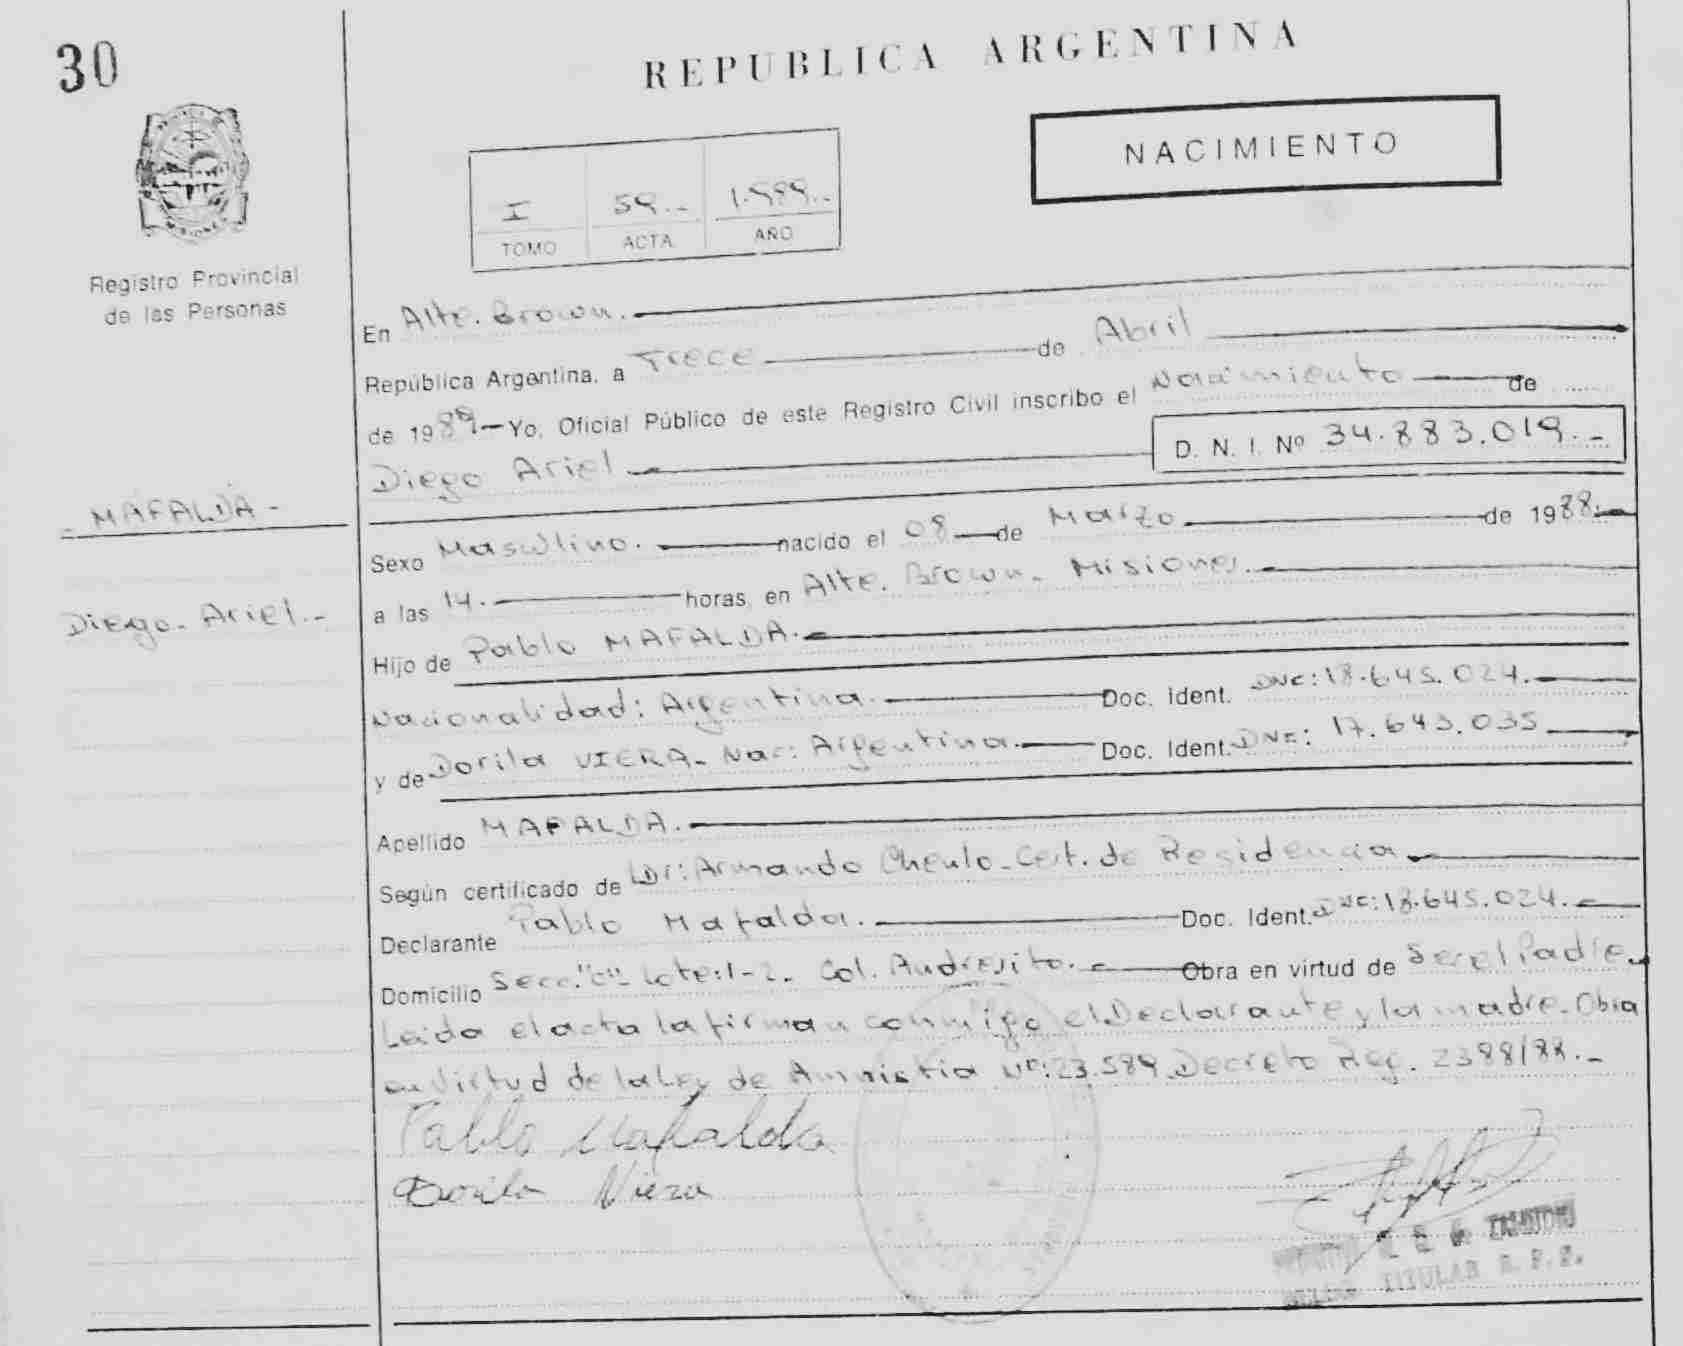 30
REPUBLICA ARGENTINA
NACIMIENTO
I 59.- 1.989.-
TOMO ACTA AÑO
Registro Provincial
de las Personas
En Alte. Brown.
República Argentina, a Trece de Abril
de 1989 Yo, Oficial Público de este Registro Civil inscribo el Nacimiento de
Diego Ariel D. N. I. Nº 34.883.019.-
- MAFALDA -
Diego. Ariel.-
Sexo Masculino. nacido el 08 de Marzo de 1988.
a las 14. horas, en Alte. Brown. Misiones.
Hijo de Pablo MAFALDA.
Nacionalidad: Argentina. Doc. Ident. DNI: 18.645.024.
y de Dorila VIERA. Nac: Argentina. Doc. Ident. DNI: 17.643.035
Apellido MAFALDA.
Según certificado de Dr: Armando Cert. de Residencia
Declarante Pablo Mafalda. Doc. Ident. DNI: 18.645.024.
Domicilio Secc. "C" Lote: 1-2. Col. Andresito. Obra en virtud de Ser el Padre.
Leida el acta la firman conmigo el Declarante y la madre. Obra
en Virtud de la Ley de Amnistia Nº: 23.589. Decreto Reg. 2388/88.-
Pablo Mafalda
Dorila Viera
TITULAR R. P. P.